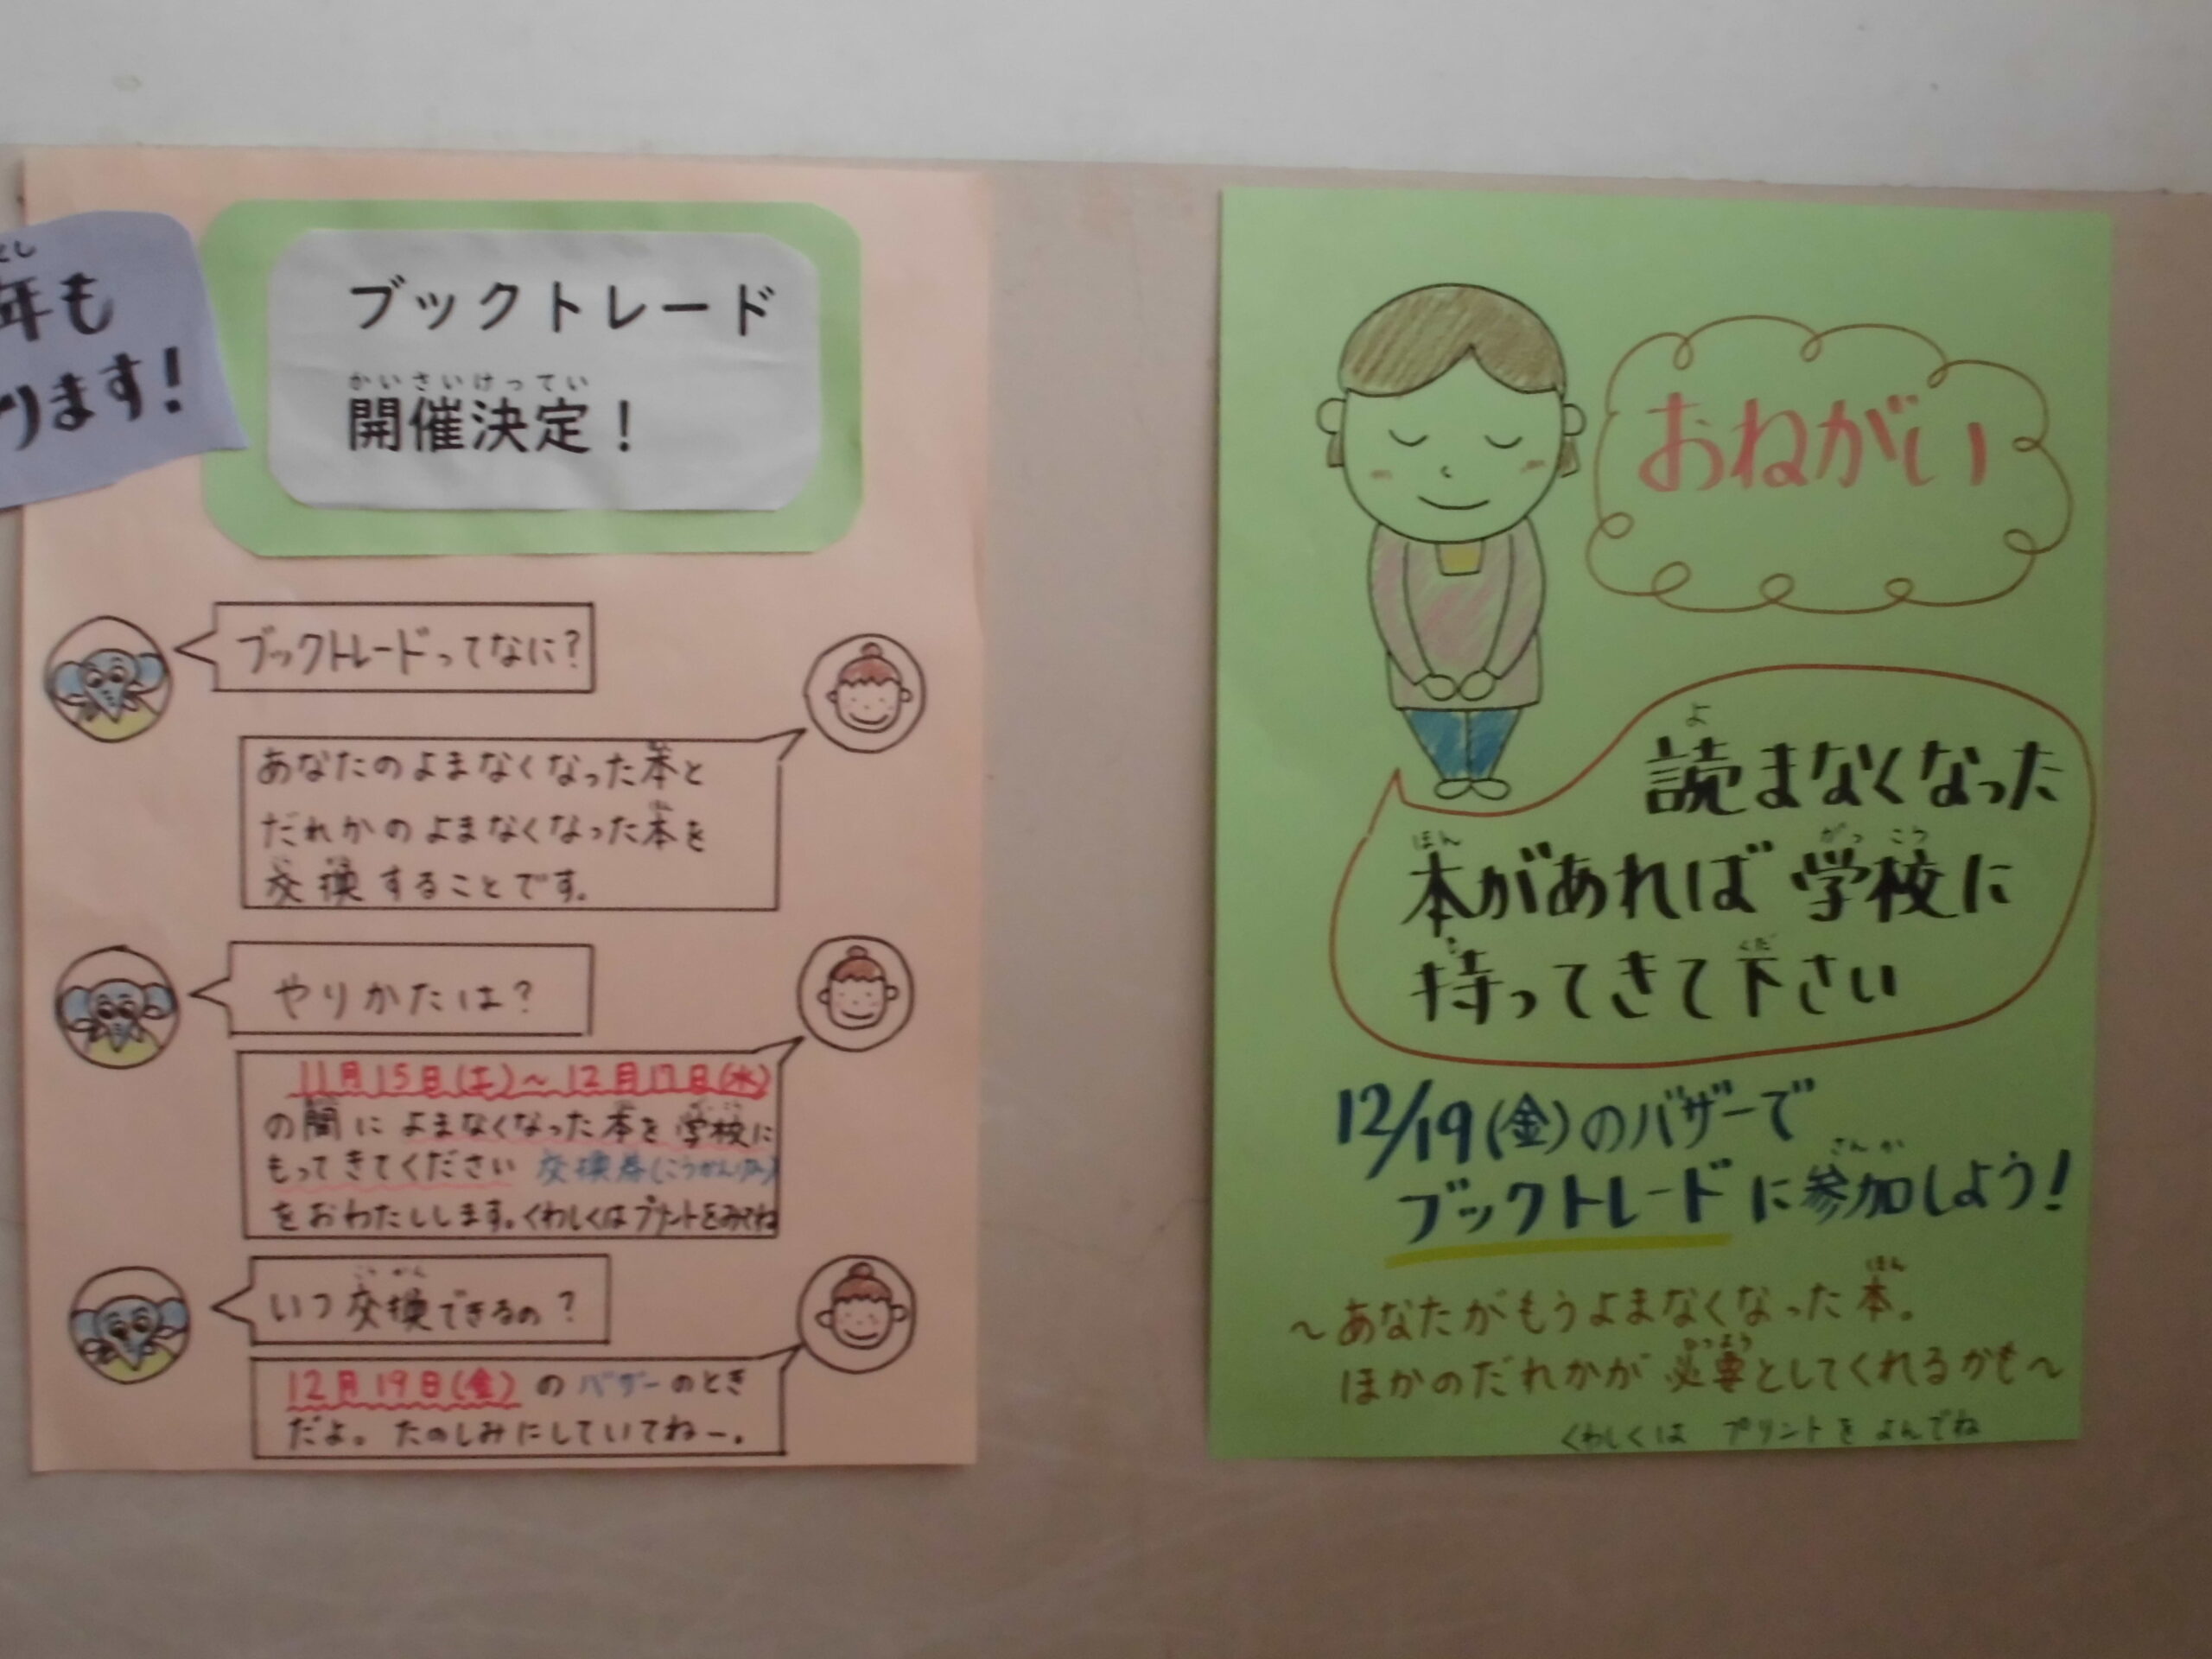 年も
ります!
ブックトレード
かいさいけってい
開催決定!
ブックトレードってなに?
あなたのよまなくなった本と
だれかのよまなくなった本を
交換することです。
やりかたは?
11月15日(土)~12月17日(水)
の間によまなくなった本を学校に
もってきてください 交換券(こうかんけん)
をおわたしします。くわしくはプリントをみてね
こうかん
いつ交換できるの?
12月19日(金)のバザーのとき
だよ。たのしみにしていてねー。
おねがい
よ
読まなくなった
ほん がっこう
本があれば学校に
も くだ
持ってきて下さい
12/19(金)のバザーで
さんか
ブックトレードに参加しよう!
ほん
~あなたがもうよまなくなった本。
ひつよう
ほかのだれかが必要としてくれるかも~
くわしくは プリントを よんでね